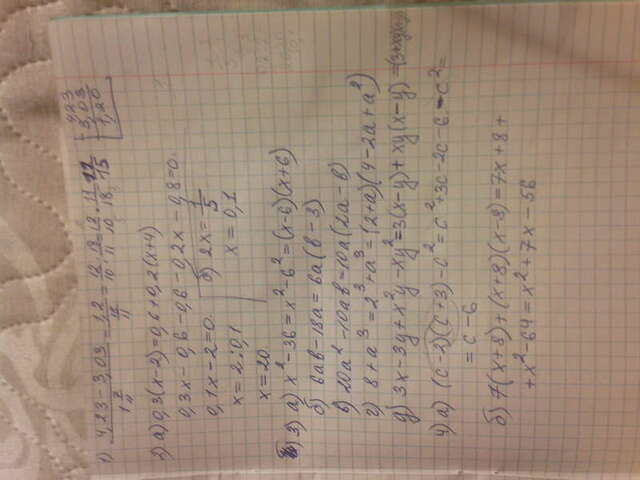 1) 4,23-3,03 / 1 2/11 = 1,2 / = 12/10 : = 12/10 · 11/ = 15
4,23
3,03
1,20
2) а) 0,3(x-2)=0,6+0,2(x+4)
0,3x-0,6-0,6-0,2x-0,8=0.
0,1x-2=0. б) 2x=1/5
x=2:0,1 x=0,1
x=20
3) а) x²-36=x²-6²=(x-6)(x+6)
б) 6ab-18a=6a(b-3)
в) 20a²-10ab=10a(2a-b)
г) 8+a³=2³+a³=(2+a)(4-2a+a²)
д) 3x-3y+x²y-xy²=3(x-y)+xy(x-y)=
4) а) (c-2)(c+3)-c²=c²+3c-2c-6-c²=
=c-6
б) 7(x+8)+(x+8)(x-8)=7x+8+
+x²-64=x²+7x-56